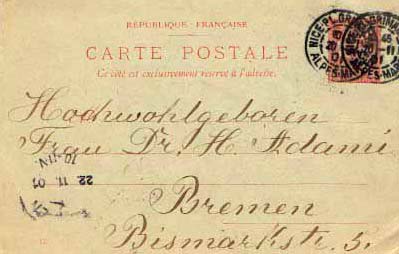 RÉPUBLIQUE FRANÇAISE
CARTE POSTALE
Ce côté est exclusivement réservé à l'adresse.
NICE PL. GRIMALDI
ALPES-MAR
Hochwohlgeboren
Frau Dr. H. Adami
Bremen
Bismarkstr. 5.
22. 11. 01